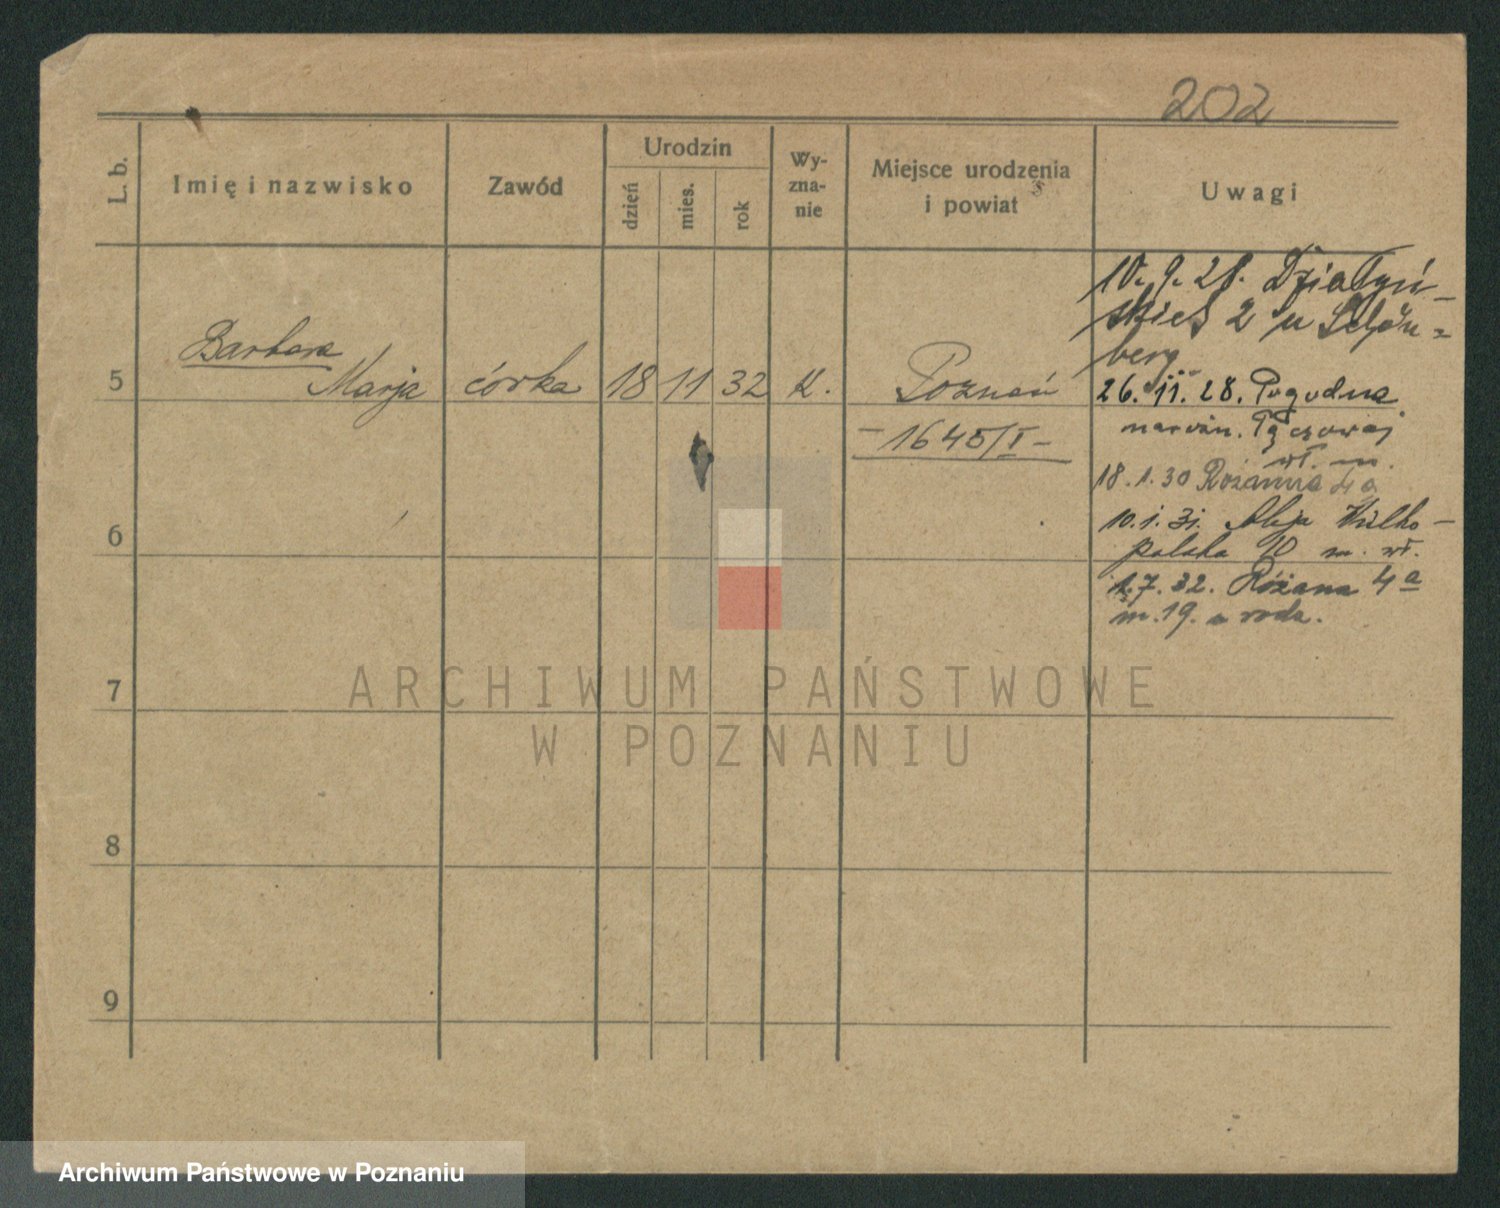 202
L. b.
Imię i nazwisko
Zawód
Urodzin
dzień
mies.
rok
Wy-
zna-
nie
Miejsce urodzenia
i powiat
Uwagi
5
Barbara
Marja
córka
18
11
32
K.
Poznań
- 1645/I -
10. 9. 28. Działyń-
skich 2 u Schön-
berg
26. 11. 28. Pogodna
narożn. Tęczowej
wł. m.
18. 1. 30 Różanna 4a
10. 1. 31. Aleja Wielko-
polska 10 m. wł.
1. 7. 32. Różana 4a
m. 19. u rodz.
6
7
8
9
ARCHIWUM PAŃSTWOWE
W POZNANIU
Archiwum Państwowe w Poznaniu